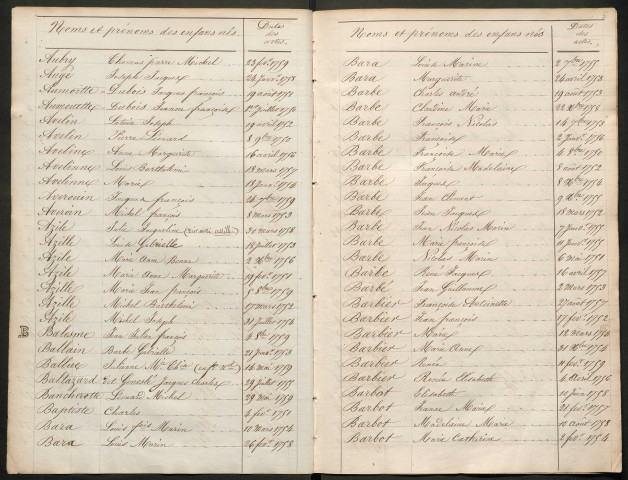 Noms et prénoms des enfans nés.
Dates des actes.
Aubry Pierre Michel 23 fev. 1759
Augé Joseph Jacques 24 Janv. 1758
Aumoitte Dubois Jacques françois 19 aout 1751
Aumouette Dubois Jeanne françoise Juillet
Avelin Joseph 19 avril 1752
Avelin Pierre Léonard 8 9bre 1750
Aveline Anne Marguerite 16 avril 1756
Avelinne Louis Barthelemi 18 mars 1757
Avelinne Marie 18 Janv. 1754
Averouin Jacques françois 7bre 1759
Avoran Michel françois 8 mars 1753
Azile Julie Jacqueline 30 mars 1758
Azille Louise Gabrielle 18 Juillet 1753
Azile Marie Anne 2 Xbre 1756
Azile Marie Anne Marguerite 19 fev. 1751
Azille Marie Jean françois 5 8bre 1759
Azille Michel Barthelemi 17 mars 1752
Azile Michel Joseph 31 Juillet 1754
B
Balisme Jean françois 4 8bre 1759
Ballain Barbe Gabrielle 21 Janv. 1753
Ballue Julienne Mie 16 mai 1759
Baltazard Jacques Charles 29 Juillet 1755
Bancherotte Léonard Michel 29 mai 1759
Baptiste Charles 4 fev. 1751
Bara Louis fois Marin 10 mars 1754
Bara Louis Marin 26 fev. 1758
Noms et prénoms des enfans nés
Dates des actes.
Bara Louise Marine 2 7bre 1759
Bara Marguerite 26 avril 1753
Barbe Charles andré 19 aout 1753
Barbe Christine Marie 22 Xbre 1758
Barbe François Nicolas 14 7bre
Barbe François 2 Janv. 1756
Barbe Françoise Marie 4 8bre 1750
Barbe Françoise Madelaine 8 aout 1752
Barbe Jacques 8 Xbre 1754
Barbe Jean Clément 9 Xbre
Barbe Jean Jacques 18 mars 1752
Barbe Jean Nicolas Marin 17 Janv.
Barbe Marie françoise 11 Janv.
Barbe Nicolas Marin 6 mai 1751
Barbe René Jacques 16 avril 1757
Barbé Jean Guillaume 2 mars 1753
Barbier Françoise Antoinette 27 aout 1757
Barbier Jean françois 17 fev. 1752
Barbier Marie 12 mars
Barbier Marie Anne 31 Xbre 1754
Barbier Renée 11 fev. 1759
Barbier Renée Elisabeth 4 avril 1756
Barbot Elisabeth 10 Juin 1758
Barbot Jeanne Marie 21 fev. 1757
Barbot Madelaine Marie 10 aout 1758
Barbot Marie Catherine 1 fev. 1754